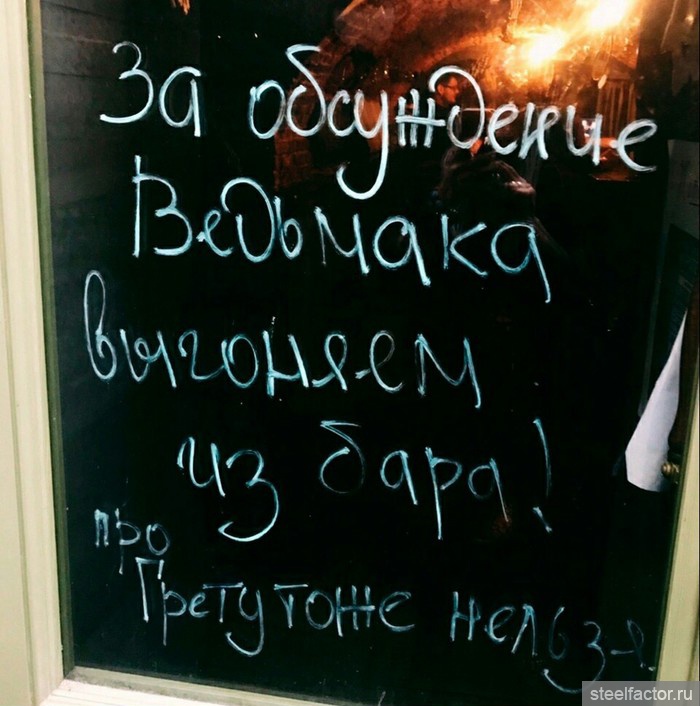 За обсуждение
Ведьмака
выгоняем
из бара!
про
Грету тоже нельзя.
steelfactor.ru